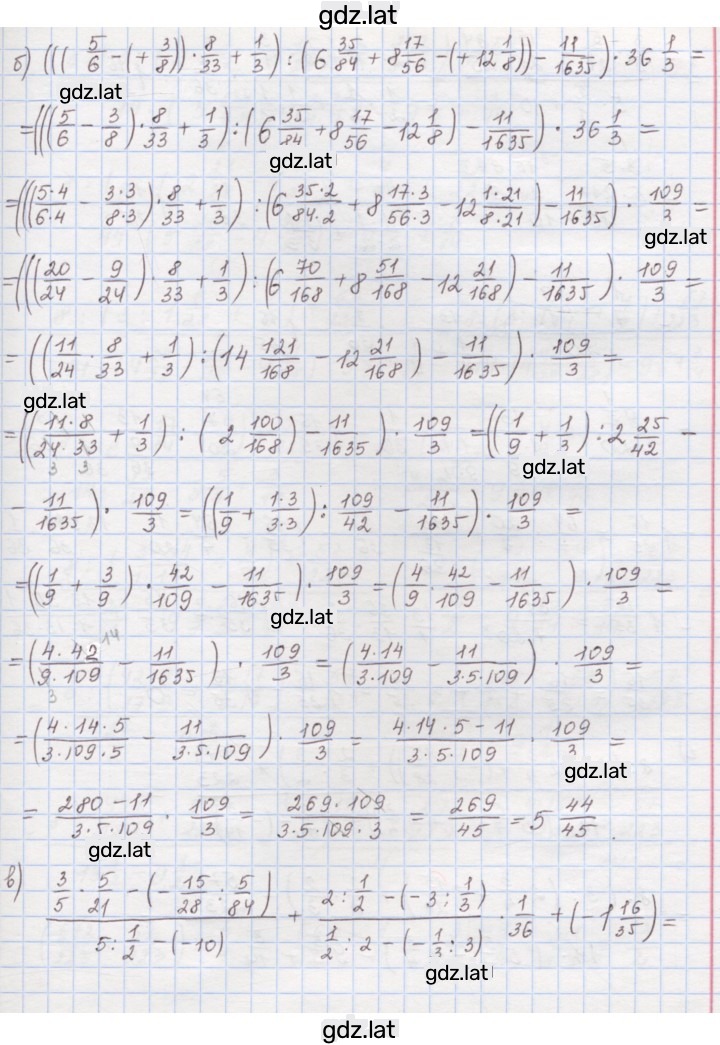 gdz.lat
б) (((5/6 − (+3/8)) · 8/33 + 1/3) : (6 35/84 + 8 17/56 − (+12 1/8)) − 11/1635) · 36 1/3 =
gdz.lat
= (((5/6 − 3/8) · 8/33 + 1/3) : (6 35/84 + 8 17/56 − 12 1/8) − 11/1635) · 36 1/3 =
gdz.lat
= (((5·4/6·4 − 3·3/8·3) · 8/33 + 1/3) : (6 35·2/84·2 + 8 17·3/56·3 − 12 1·21/8·21) − 11/1635) · 109/3 =
gdz.lat
= (((20/24 − 9/24) · 8/33 + 1/3) : (6 70/168 + 8 51/168 − 12 21/168) − 11/1635) · 109/3 =
= ((11/24 · 8/33 + 1/3) : (14 121/168 − 12 21/168) − 11/1635) · 109/3 =
gdz.lat
= ((11·8/24·33 + 1/3) : (2 100/168) − 11/1635) · 109/3 = ((1/9 + 1/3) : 2 25/42 −
3 3
gdz.lat
− 11/1635) · 109/3 = ((1/9 + 1·3/3·3) : 109/42 − 11/1635) · 109/3 =
= ((1/9 + 3/9) · 42/109 − 11/1635) · 109/3 = (4/9 · 42/109 − 11/1635) · 109/3 =
gdz.lat
14
= (4·42/9·109 − 11/1635) · 109/3 = (4·14/3·109 − 11/3·5·109) · 109/3 =
3
= (4·14·5/3·109·5 − 11/3·5·109) · 109/3 = 4·14·5−11/3·5·109 · 109/3 =
gdz.lat
= 280−11/3·5·109 · 109/3 = 269·109/3·5·109·3 = 269/45 = 5 44/45.
gdz.lat
в) (3/5 · 5/21 − (−15/28 : 5/84))/(5 : 1/2 − (−10)) + (2 : 1/2 − (−3 : 1/3))/(1/2 : 2 − (−1/3 : 3)) · 1/36 + (−1 16/35) =
gdz.lat
gdz.lat